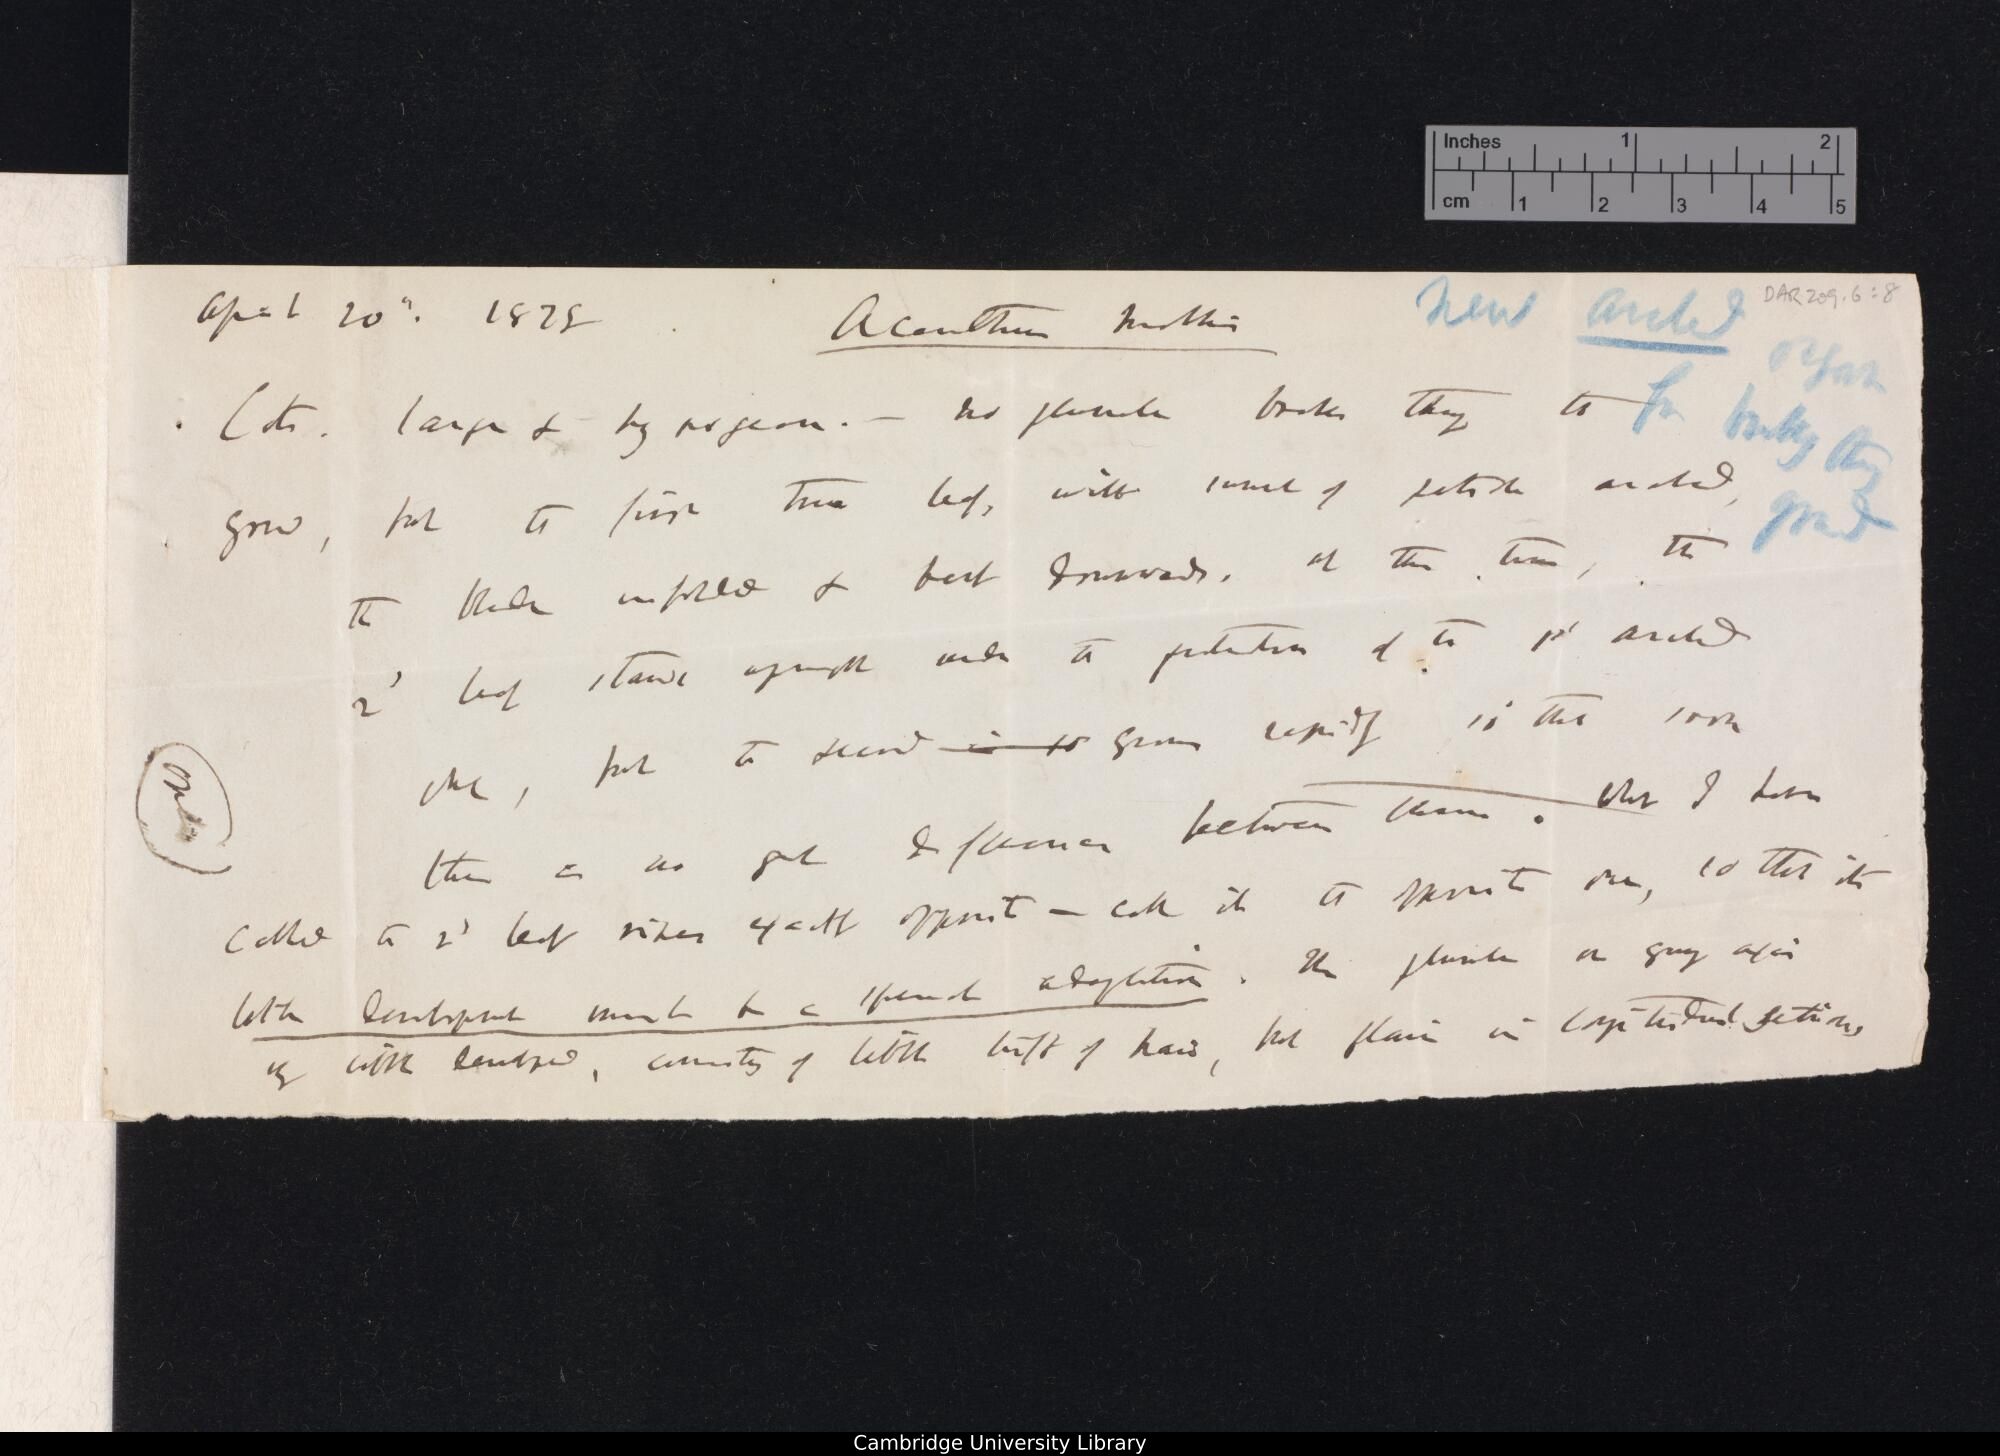 DAR 209.6:8
April 20th. 1878
Acanthus mollis
New arched organ
for breaking thro
ground
Cots. large & hypogean. — no plumule breaks through the
grou, but the first true leaf, with summit of petiole arched,
the blade unfolded & bent downwards. At this time, the
2d leaf stands upright under the protection of the 1st arched
one, but the second is so grows rapidly so that soon
there is no great difference between them. What I have
called the 2d leaf rises exactly opposite — call it the opposite one, so that its
little development must be a special adaptation. The plumule or growing axis
is little developed, consisting of little tuft of hairs, but plain in longitudinal sections
Inches 1 2
cm 1 2 3 4 5
Cambridge University Library